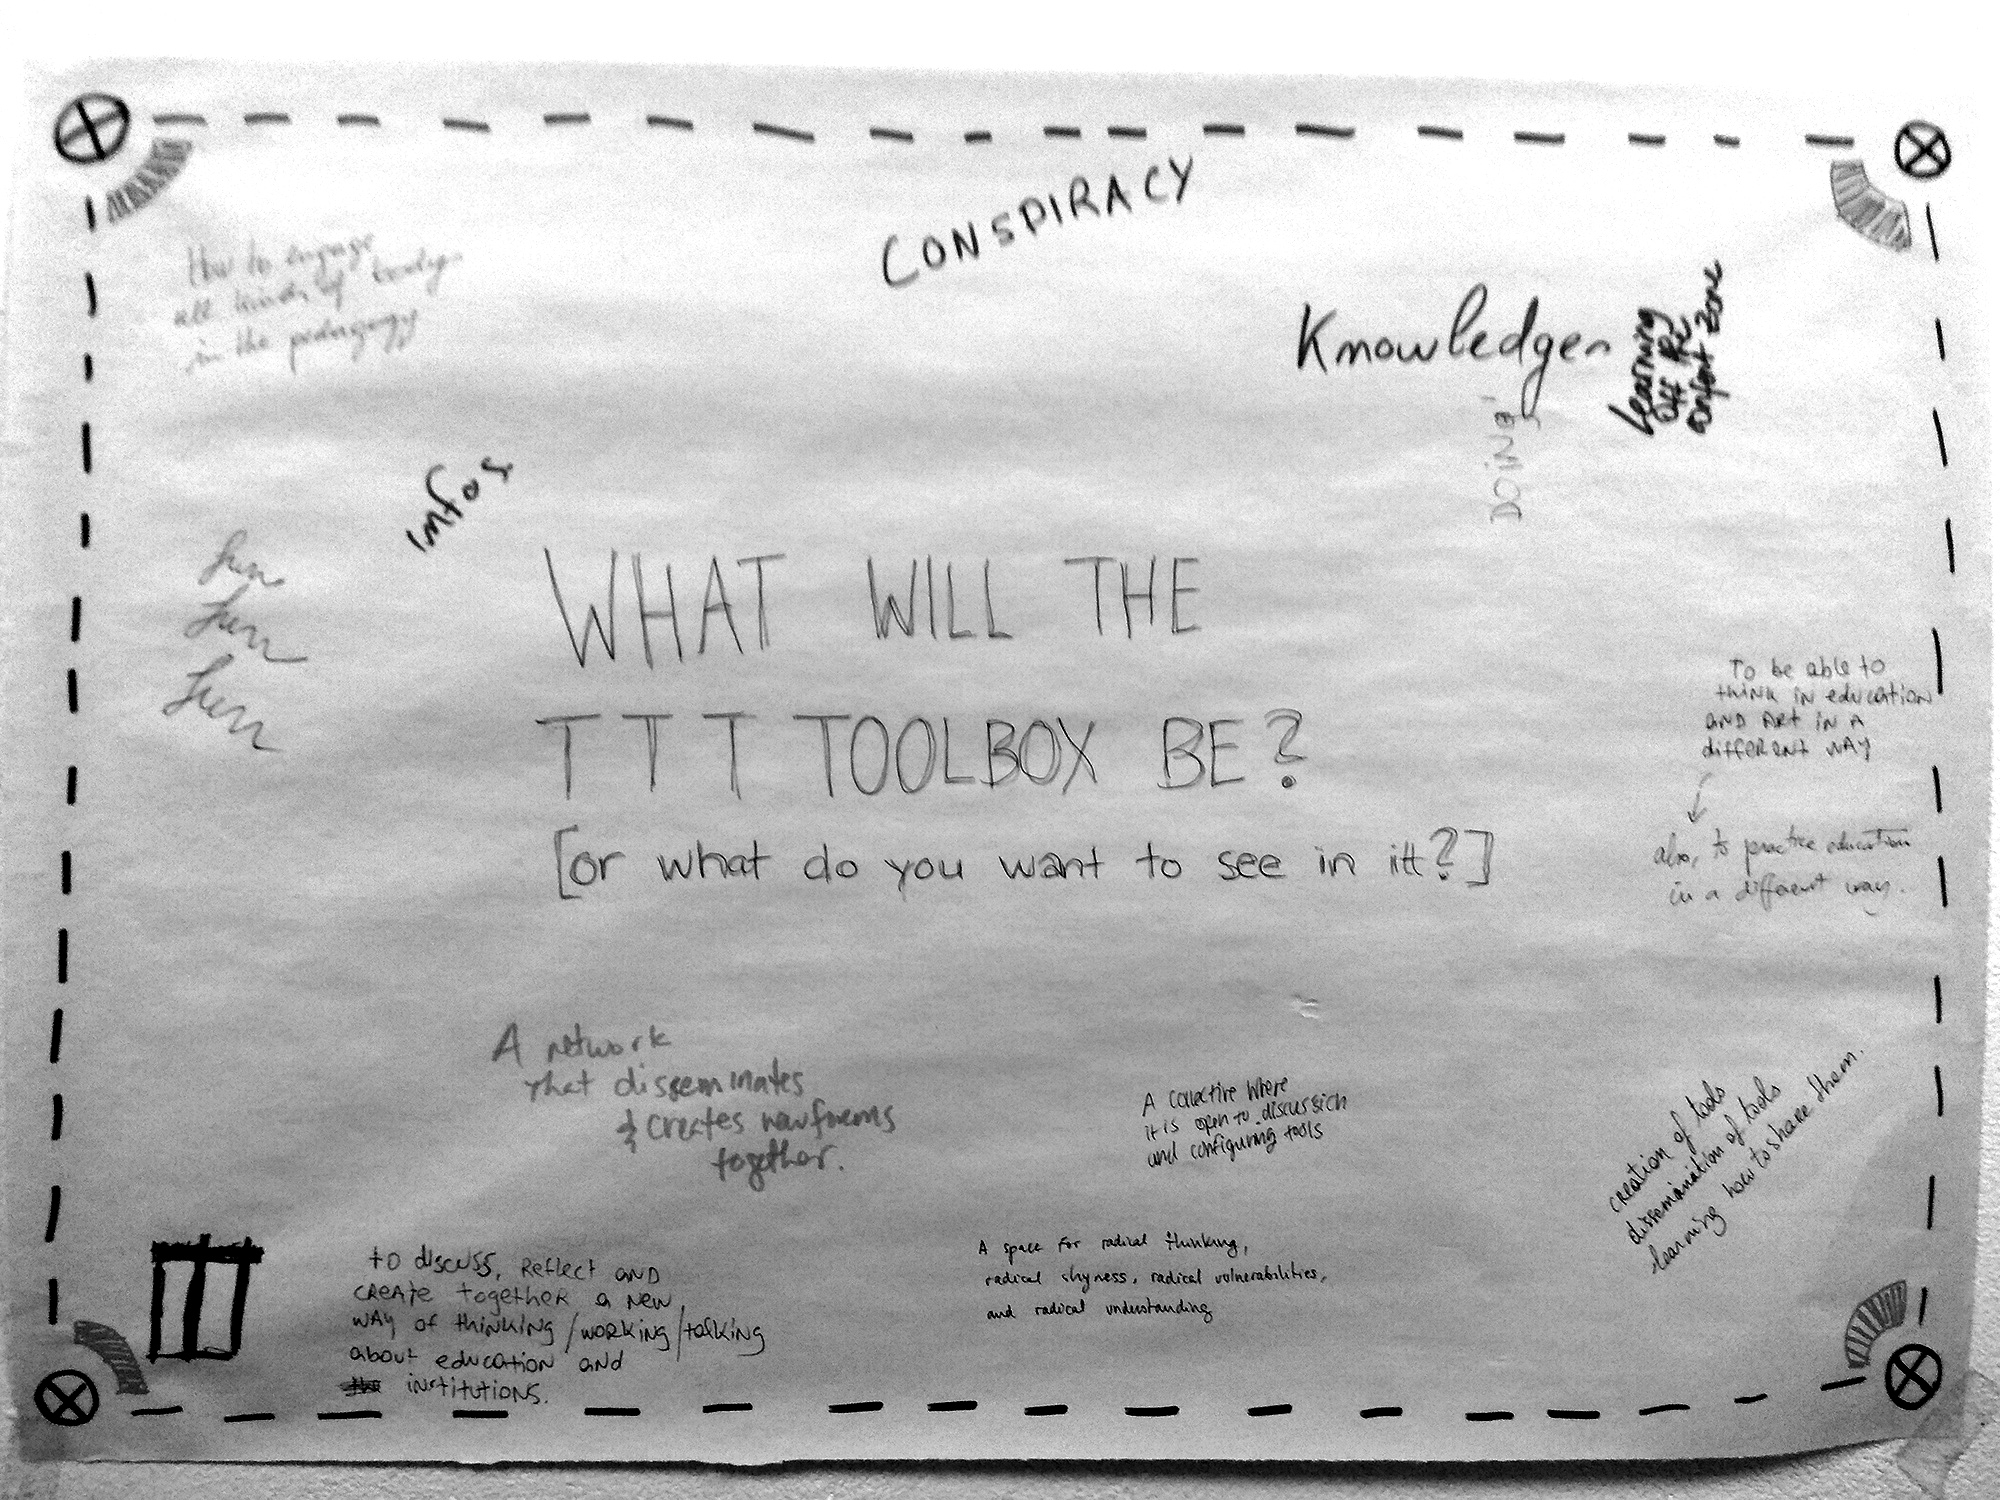 CONSPIRACY
How to engage
all kinds of body
in the pedagogy
Knowledge
Learning
off the
confort zone
DOING!
infos
fun
fun
fun
WHAT WILL THE
T T T TOOLBOX BE?
[or what do you want to see in itt?]
To be able to
think in education
AND ART IN A
different way
also, to practice education
in a different way.
A network
that disseminates
& creates new forms
together.
A collective where
it is open to discussion
and configuring tools
creation of tools
dissemination of tools
learning how to share them.
A space for radical thinking,
radical shyness, radical vulnerabilities,
and radical understanding
to discuss, Reflect and
create together a new
way of thinking/working/talking
about education and
institutions.